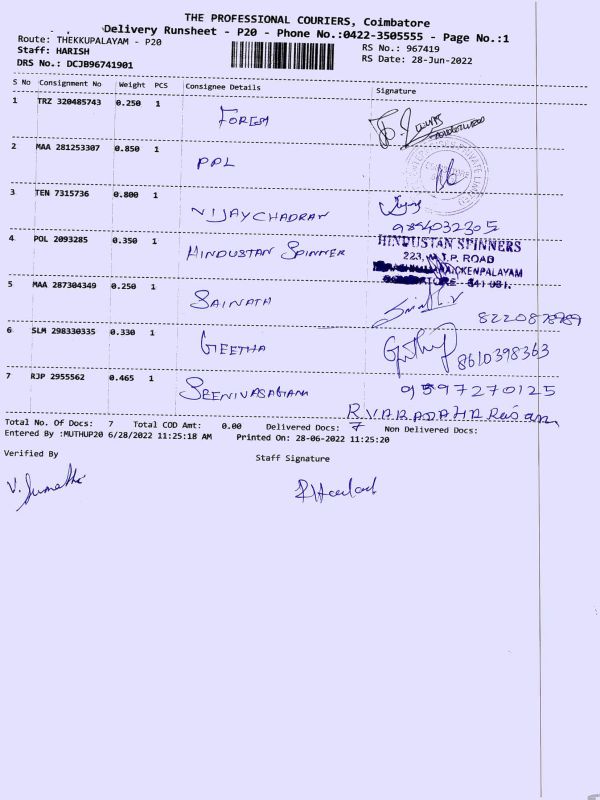 THE PROFESSIONAL COURIERS, Coimbatore
Delivery Runsheet - P20 - Phone No.:0422-3505555 - Page No.:1
Route: THEKKUPALAYAM - P20
RS No.: 967419
Staff: HARISH
RS Date: 28-Jun-2022
DRS No.: DCJB96741901
S No Consignment No Weight PCS Consignee Details Signature
1 TRZ 320485743 0.250 1
2 MAA 281253307 0.850 1 PPL
3 TEN 7315736 0.800 1 VIJAYCHADRAN
4 POL 2093285 0.350 1 HINDUSTAN SPINNER
HINDUSTAN SPINNERS
223, M.T.P. ROAD
5 MAA 287304349 0.250 1 SAINATH
6 SLM 298330335 0.330 1 GEETHA 8610398363
7 RJP 2955562 0.465 1 9597270125
Total No. Of Docs: 7 Total COD Amt: 0.00 Delivered Docs: 7 Non Delivered Docs:
Entered By :MUTHUP20 6/28/2022 11:25:18 AM Printed On: 28-06-2022 11:25:20
Verified By Staff Signature